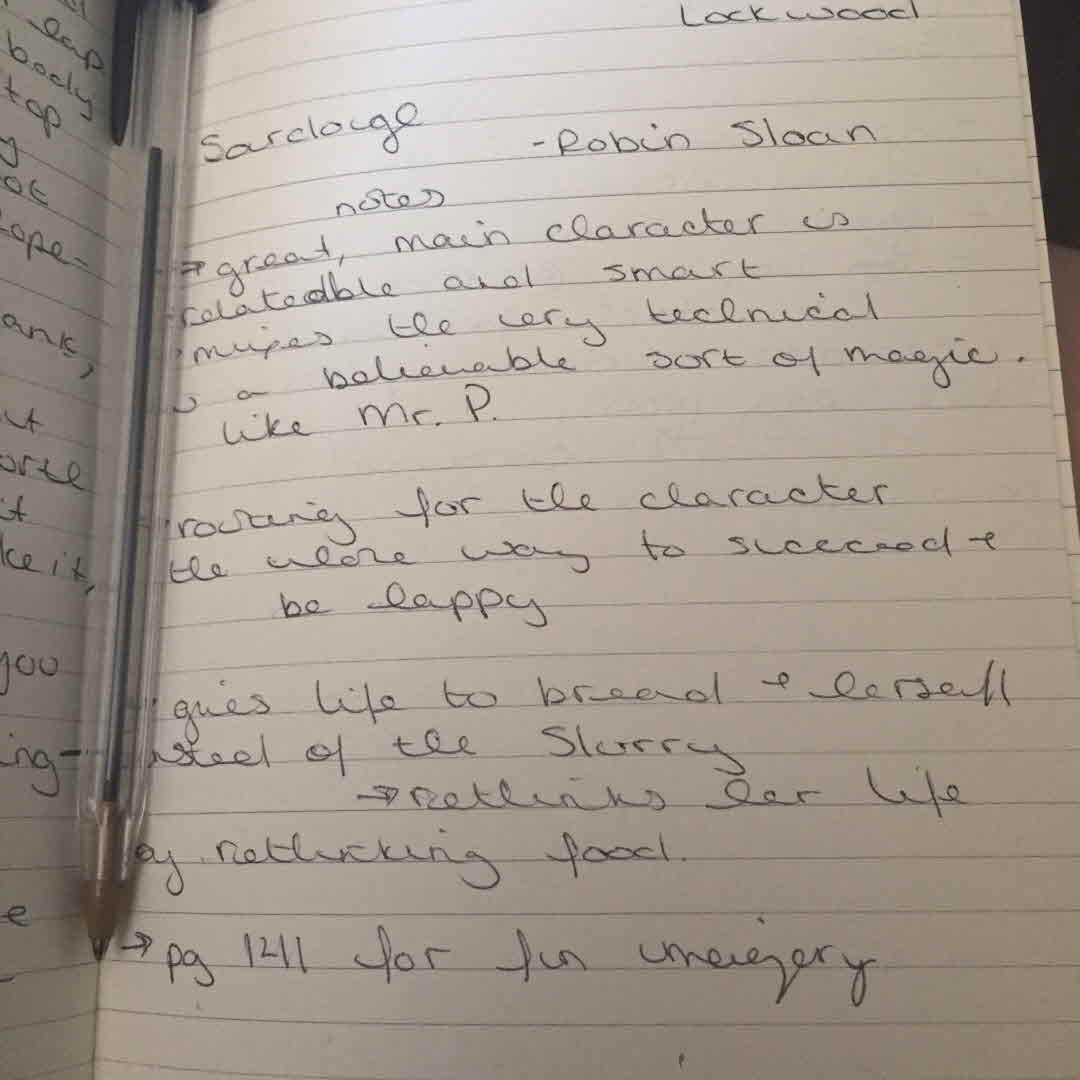 Lockwood
leap
body
top
Sardouge
- Robin Sloan
notes
→ great, main character is
relatedble and smart
mixes the very technical
a believable sort of magic.
like Mr. P.
ank,
rooting for the character
the whole way to succeed +
be happy
ke it,
you
gives life to bread + herself
instead of the Slurry
→ rethinks her life
by rethinking food.
ing-
→ pg 1211 for fun imagery